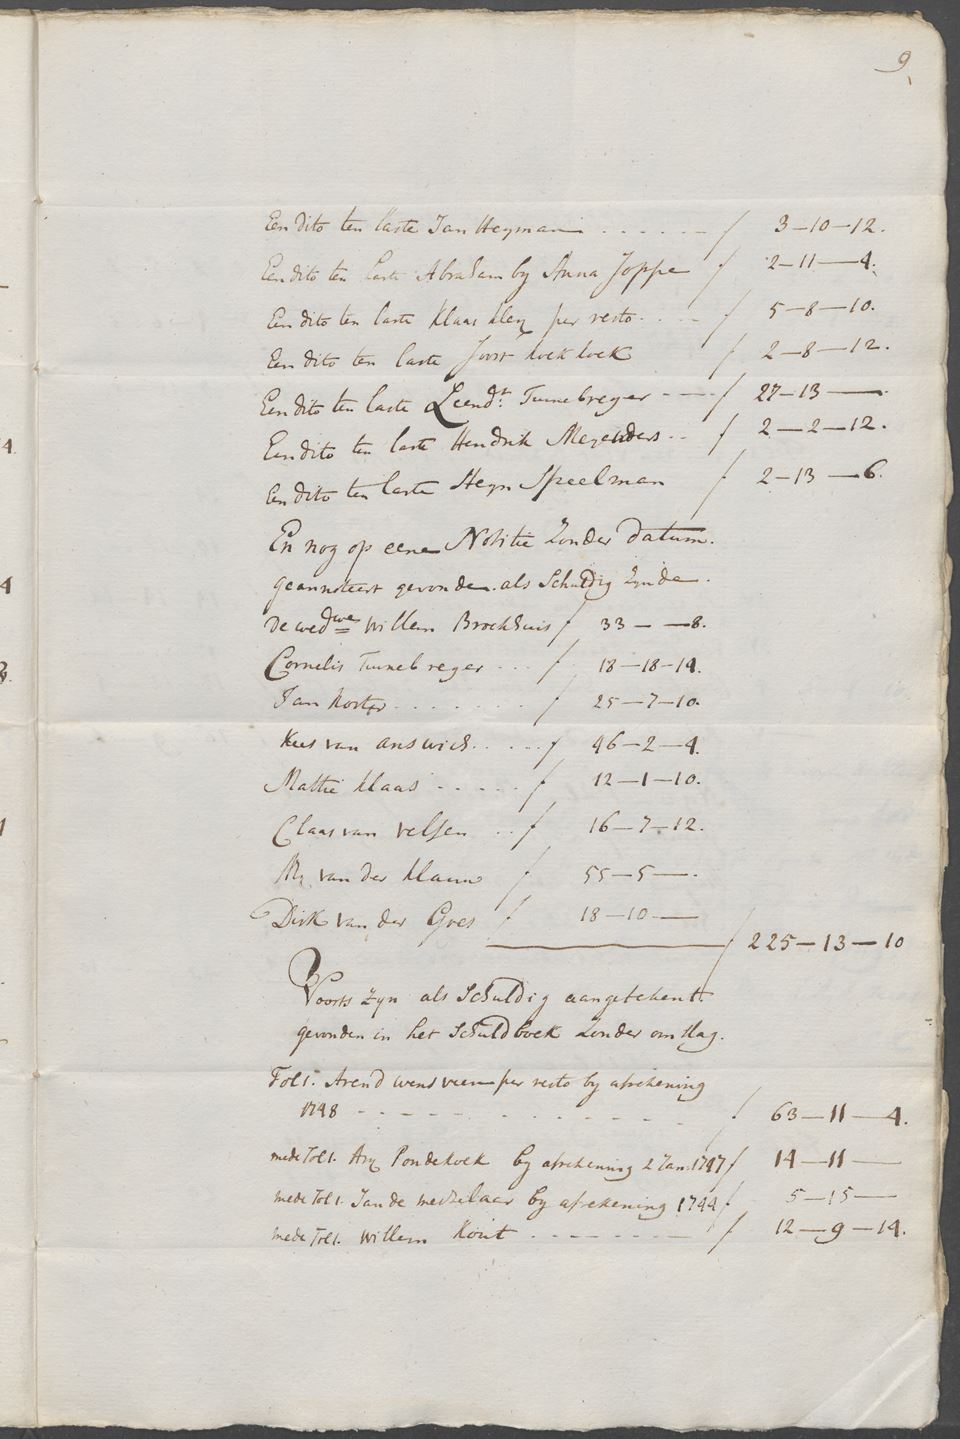 9
Een dito ten laste Jan Heyman ƒ 3-10-12.
Een dito ten laste Abraham by Anna Joppe ƒ 2-11-4.
Een dito ten laste Klaas kley per resto ƒ 5-8-10.
Een dito ten laste Joost koekkoek ƒ 2-8-12.
Een dito ten laste Leend.t Tunnebreger ƒ 27-13-
Een dito ten laste Hendrik Meyenders ƒ 2-2-12.
Een dito ten laste Heyn Speelman ƒ 2-13-6.
En nog op eene Notitie Zonder datum.
geannoteert gevonden als Schuldig Zynde.
De wedwe Willem Brockhuis ƒ 33- -8.
Cornelis Tunnebreger ƒ 18-18-14.
Jan Korter ƒ 25-7-10.
Kees van answick ƒ 46-2-4.
Mattie Klaas ƒ 12-1-10.
Claas van velsen ƒ 16-7-12.
van der klauw ƒ 55-5-.
Dirk van der Goes ƒ 18-10-
ƒ 225-13-10
Voorts Zyn als Schuldig aangetekent
gevonden in het Schuldboek Zonder omslag.
Fol 1. Arend wensveen per resto by afrekening
1748 ƒ 63-11-4.
mede Fol 1. Ary Pondekoek by afrekening 2 Jan 1747 ƒ 14-11-
mede Fol 1. Jan de metzelaar by afrekening 1744 ƒ 5-15-
mede Fol 1. Willem Kout ƒ 12-9-14.